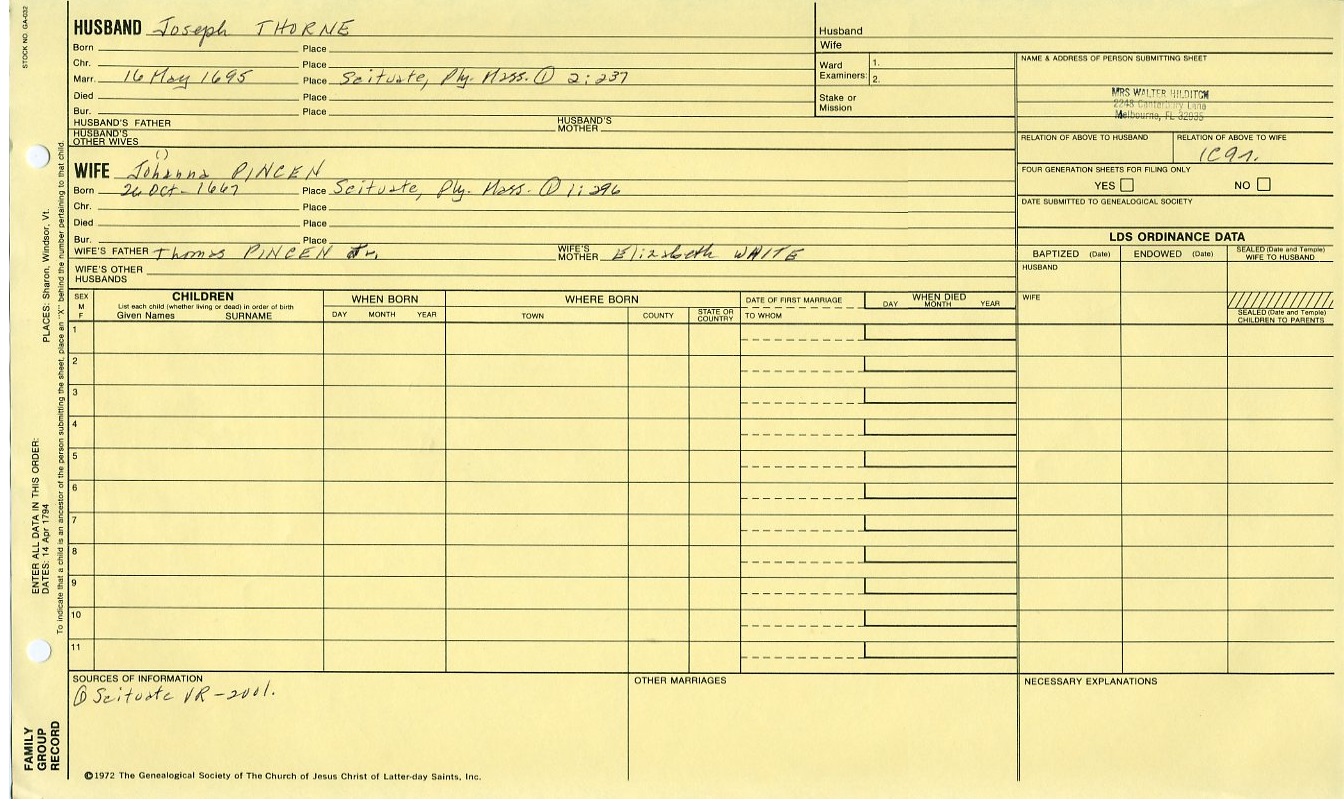 STOCK NO. GA-032
HUSBAND Joseph THORNE
Born Place
Chr. Place
Marr. 16 May 1695 Place Scituate, Ply. Mass. ① 2:237
Died Place
Bur. Place
HUSBAND'S FATHER HUSBAND'S MOTHER
HUSBAND'S OTHER WIVES
Husband
Wife
Ward Examiners: 1.
2.
Stake or Mission
NAME & ADDRESS OF PERSON SUBMITTING SHEET
MRS WALTER HILDITCH
2248 Canterbury Lane
Melbourne, FL 32935
RELATION OF ABOVE TO HUSBAND RELATION OF ABOVE TO WIFE
1C9r.
FOUR GENERATION SHEETS FOR FILING ONLY
YES NO
DATE SUBMITTED TO GENEALOGICAL SOCIETY
()
WIFE Johanna PINCEN
Born 26 Oct 1667 Place Scituate, Ply. Mass. ① 1:296
Chr. Place
Died Place
Bur. Place
WIFE'S FATHER Thomas PINCEN Jr. WIFE'S MOTHER Elizabeth WHITE
WIFE'S OTHER HUSBANDS
LDS ORDINANCE DATA
BAPTIZED (Date) ENDOWED (Date) SEALED (Date and Temple) WIFE TO HUSBAND
HUSBAND
WIFE
SEALED (Date and Temple) CHILDREN TO PARENTS
SEX M F
CHILDREN
List each child (whether living or dead) in order of birth
Given Names SURNAME
WHEN BORN
DAY MONTH YEAR
WHERE BORN
TOWN COUNTY STATE OR COUNTRY
DATE OF FIRST MARRIAGE
TO WHOM
WHEN DIED
DAY MONTH YEAR
1
2
3
4
5
6
7
8
9
10
11
SOURCES OF INFORMATION
① Scituate VR - 2001.
OTHER MARRIAGES
NECESSARY EXPLANATIONS
©1972 The Genealogical Society of The Church of Jesus Christ of Latter-day Saints, Inc.
PLACES: Sharon, Windsor, Vt.
ENTER ALL DATA IN THIS ORDER:
DATES: 14 Apr 1794
To indicate that a child is an ancestor of the person submitting the sheet, place an "X" behind the number pertaining to that child.
FAMILY
GROUP
RECORD